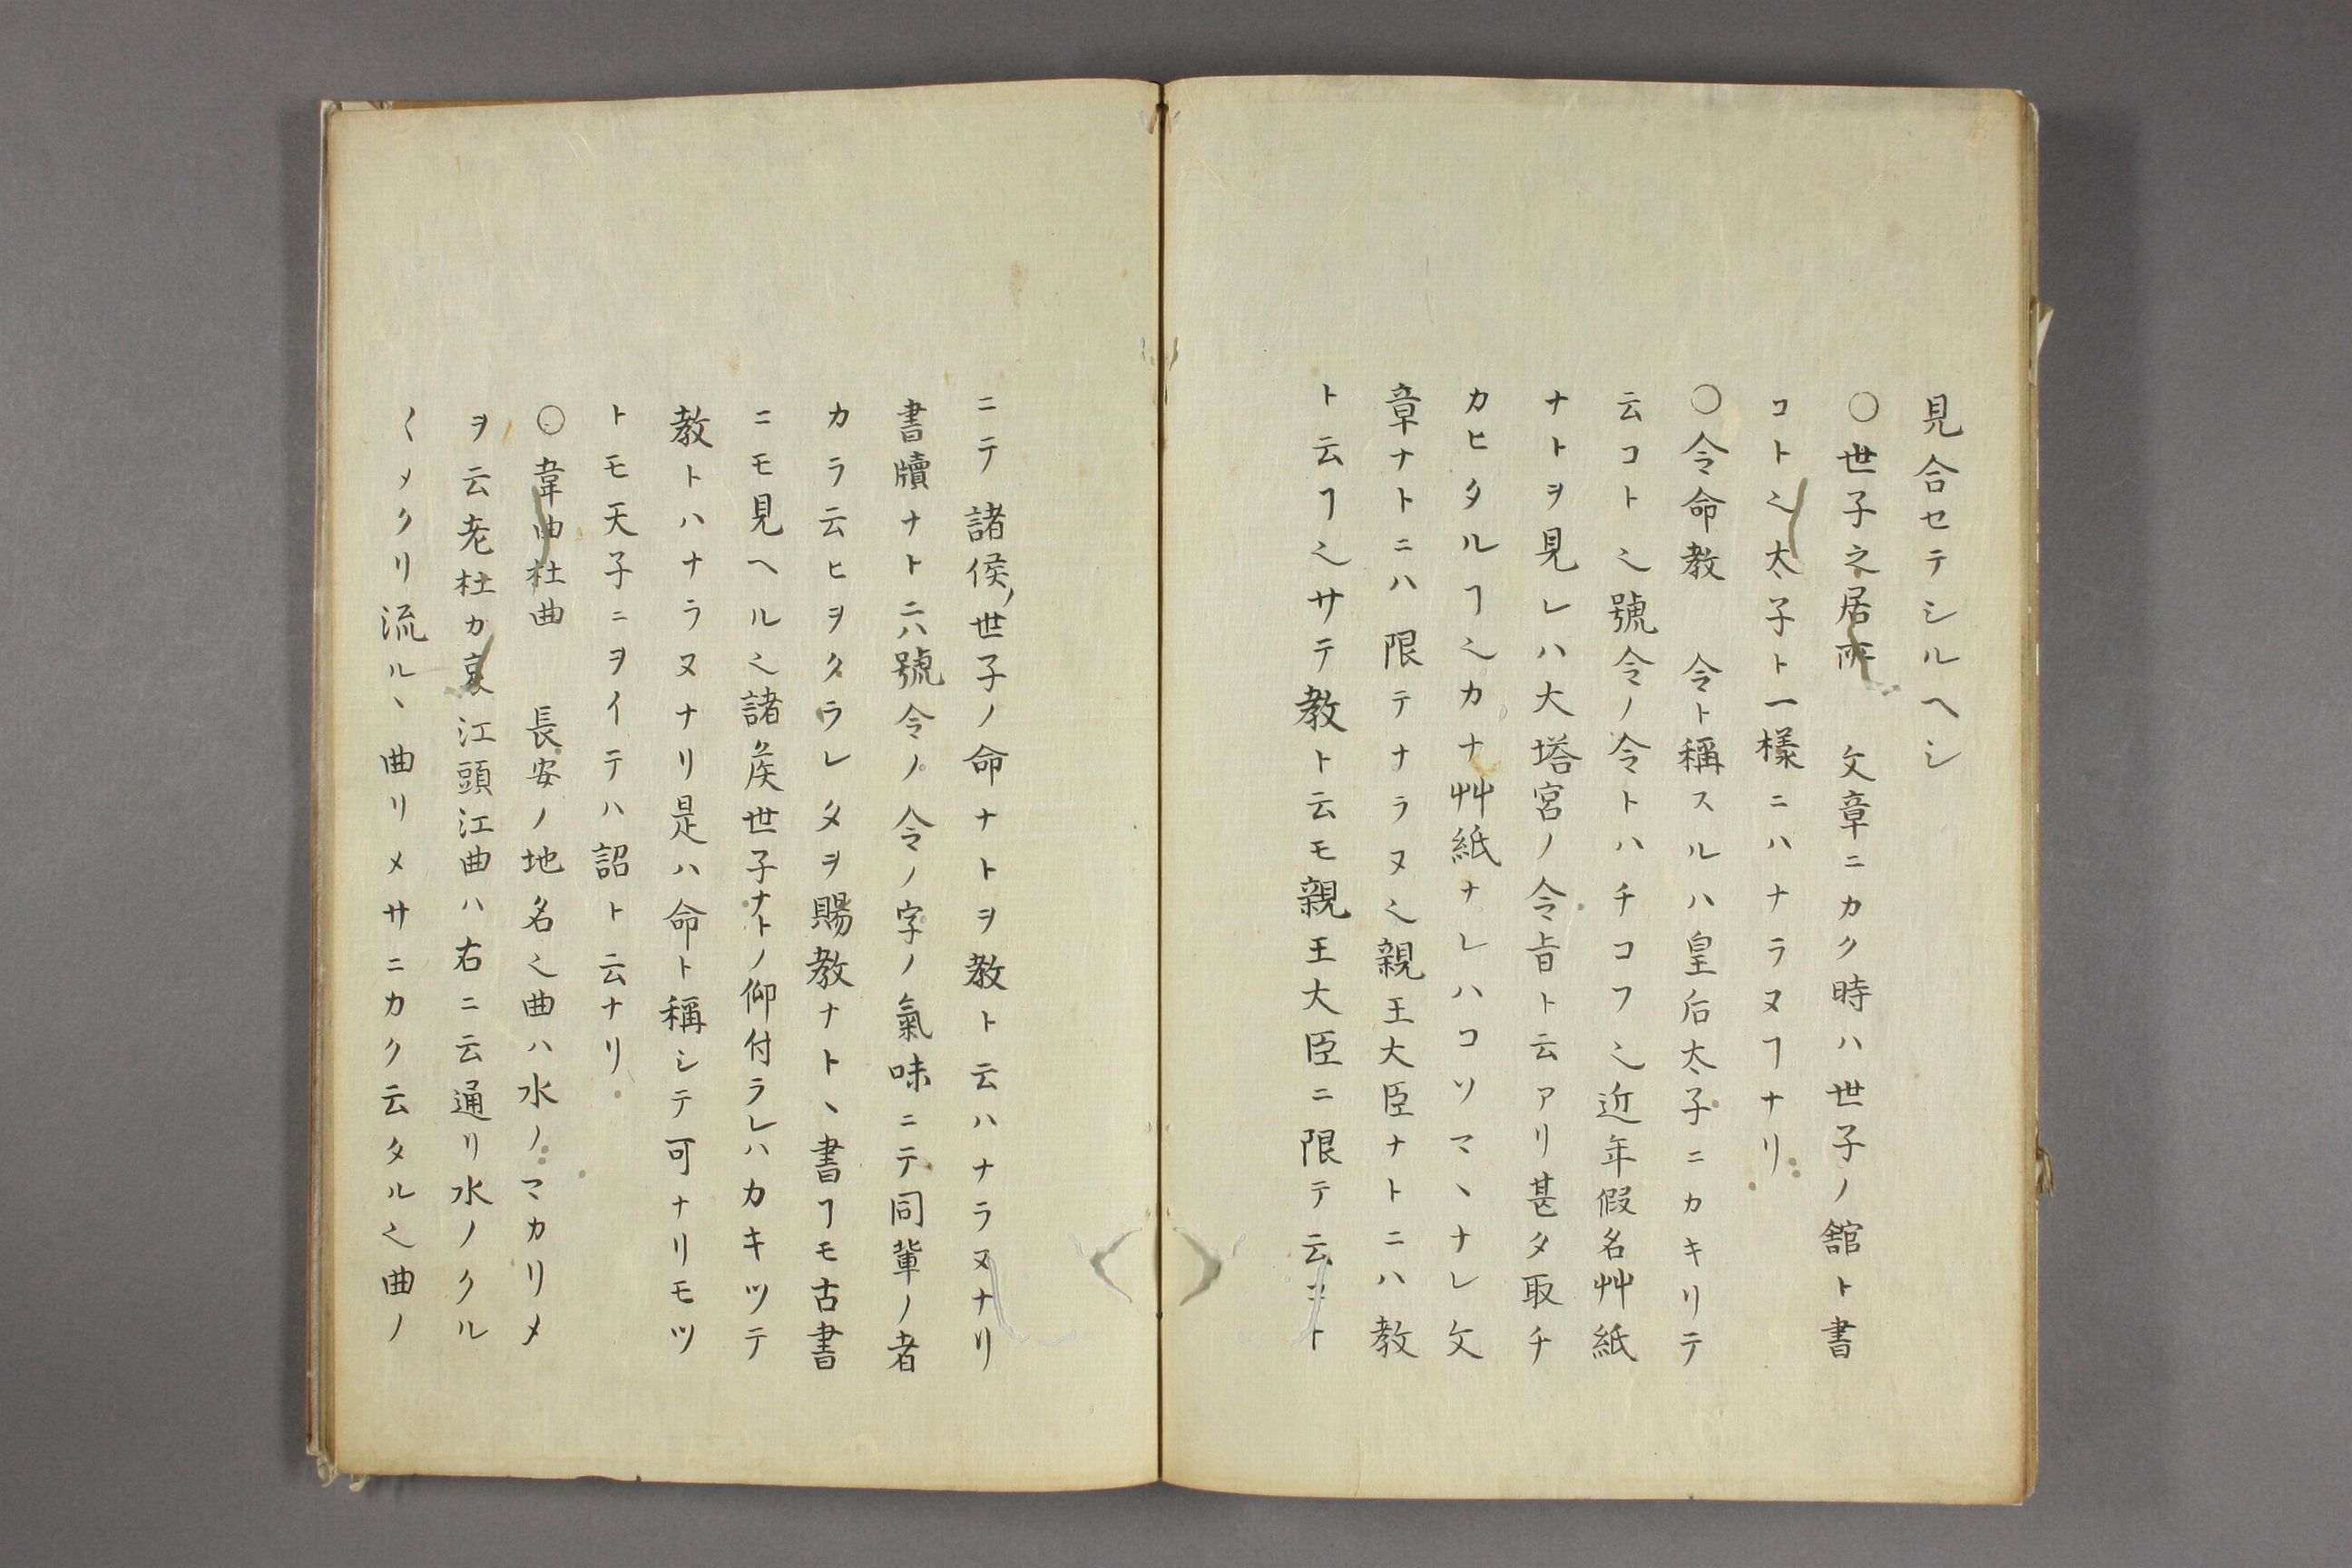 見合セテシルヘシ
〇世子之居所　文章ニカク時ハ世子ノ舘ト書
コト〆太子ト一樣ニハナラヌヿナリ
〇令命教　令ト稱スルハ皇后太子ニカキリテ
云コト〆號令ノ令トハチコフ〆近年假名艸紙
ナトヲ見レハ大塔宮ノ令旨ト云アリ甚タ取チ
カヒタルヿ〆カナ艸紙ナレハコソマヽナレ文
章ナトニハ限テナラヌ〆親王大臣ナトニハ教
ト云ヿ〆サテ教ト云モ親王大臣ニ限テ云コト
ニテ諸侯ノ世子ノ命ナトヲ教ト云ハナラヌナリ
書牘ナトニハ號令ノ令ノ字ノ氣味ニテ同輩ノ者
カラ云ヒヲクラレタヲ賜教ナトヽ書ヿモ古書
ニモ見ヘル〆諸侯世子ナトノ仰付ラレハカキツテ
教トハナラヌナリ是ハ命ト稱シテ可ナリモツ
トモ天子ニヲイテハ詔ト云ナリ
〇韋曲杜曲　長安ノ地名〆曲ハ水ノマカリメ
ヲ云老杜カ哀江頭江曲ハ右ニ云通リ水ノクル
〱メクリ流ルヽ曲リメサニカク云タル〆曲ノ